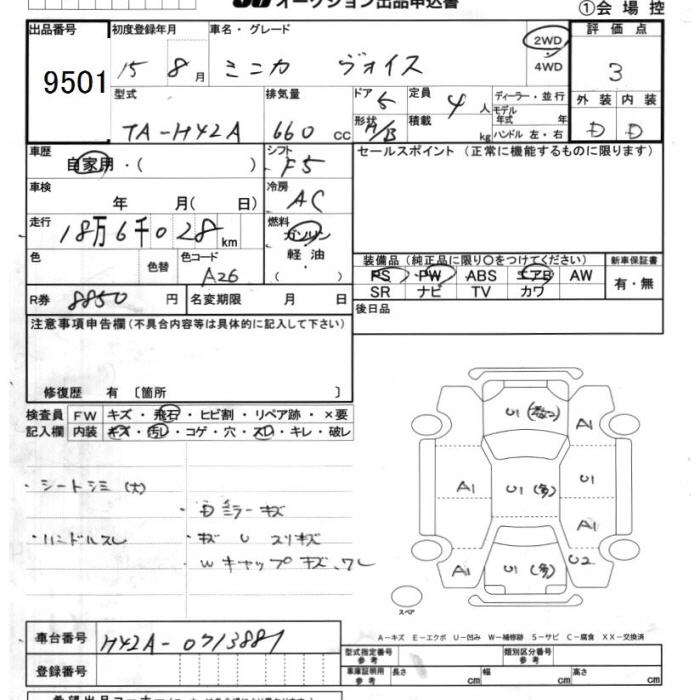 オークション出品申込書 ①会場控
出品番号 初度登録年月 車名・グレード 2WD 評価点
9501 15 8月 ミニカ ヴォイス 4WD 3
型式 排気量 ドア 5 定員 4人 ディーラー・並行 外装 内装
モデル年式 年
TA-H42A 660cc 形状 H/B 積載 kg ハンドル 左・右 D D
車歴 シフト セールスポイント (正常に機能するものに限ります)
自家用・( ) F5
車検 冷房
年 月( 日) AC
走行 燃料
18万6千028km ガソリン
色 色替 色コード 軽油 装備品 (純正品に限り○をつけてください) 新車保証書
A26 ( ) PS PW ABS エアB AW 有・無
R券 8850円 名変期限 月 日 SR ナビ TV カワ
後日品
注意事項申告欄(不具合内容等は具体的に記入して下さい)
修復歴 有 〔箇所 〕
検査員 FW キズ・飛石・ヒビ割・リペア跡・×要
記入欄 内装 キズ・汚レ・コゲ・穴・スレ・キレ・破レ
U1 A1
・シートシミ(大) A1 U1(多) U1
・自ミラーキズ
A1
・ハンドルスレ ・キズ U スリキズ
U2
Wキャップキズ、ワレ A1 U1(多)
スペア
A-キズ E-エクボ U-凹み W-補修跡 S-サビ C-腐食 XX-交換済
車台番号 H42A-0713881
型式指定番号 参考 類別区分番号 参考
登録番号 車庫証明用 参考 長さ cm 幅 cm 高さ cm